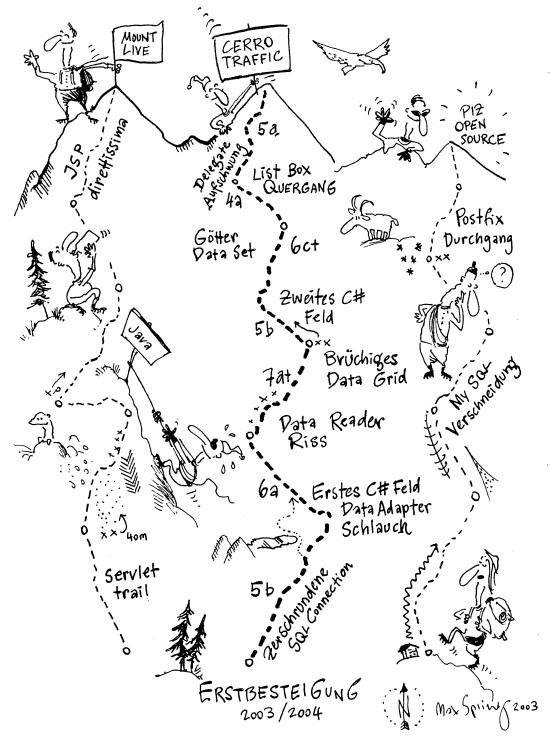 MOUNT
LIVE
CERRO
TRAFFIC
PIZ
OPEN
SOURCE
JSP
direttissima
5a
Delegate
Aufschwung
4a
List Box
QUERGANG
Götter
Data Set
6ct
Postfix
Durchgang
?
Zweites C#
Feld
5b
Java
Brüchiges
Data Grid
7at
My SQL
Verschneidung
Data Reader
Riss
6a
Erstes C# Feld
Data Adapter
Schlauch
40m
Servlet
trail
5b
Zerschrundene
SQL Connection
ERSTBESTEIGUNG
2003/2004
N
Max Spring 2003